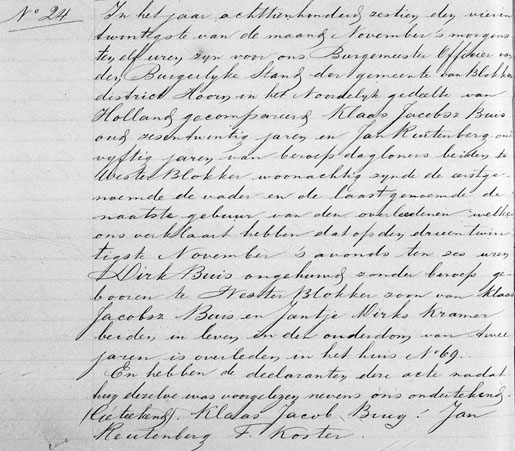 N° 24 In het jaar achttienhonderd zestien den vieren
twintigste van de maand November 's morgens
ten elf uren zijn voor ons Burgemeester Officier van
den Burgerlyke Stand der gemeente van Blokker
district Hoorn in het Noordelyk gedeelte van
Holland gecompareerd Klaas Jacobsz Buis
oud zesentwintig jaren en Jan Reutenberg oud
vyftig jaren van beroep dagloners beiden te
Wester Blokker woonachtig zynde de eerstge-
noemde de vader en de laastgenoemde de
naatste gebuur van den overledenen welke
ons verklaart hebben dat op den drieentwin
tigste November 's avonds ten ses uren
Dirk Buis ongehuwd zonder beroep ge-
booren te Wester Blokker zoon van Klaas
Jacobsz Buis en Jantje Dirks Kramer
beiden in leven in den ouderdom van twee
jaren is overleden in het huis N° 69.
En hebben de declaranten deze acte nadat
hun dezelve was voorgelezen nevens ons ondertekend.
(Geteekend) Klaas Jacob Buys Jan
Reutenberg F. Koster.